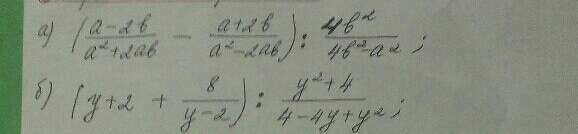 а) ( (a-2b)/(a²+2ab) - (a+2b)/(a²-2ab) ) : 4b²/(4b²-a²) ;
б) ( y+2 + 8/(y-2) ) : (y²+4)/(4-4y+y²) ;